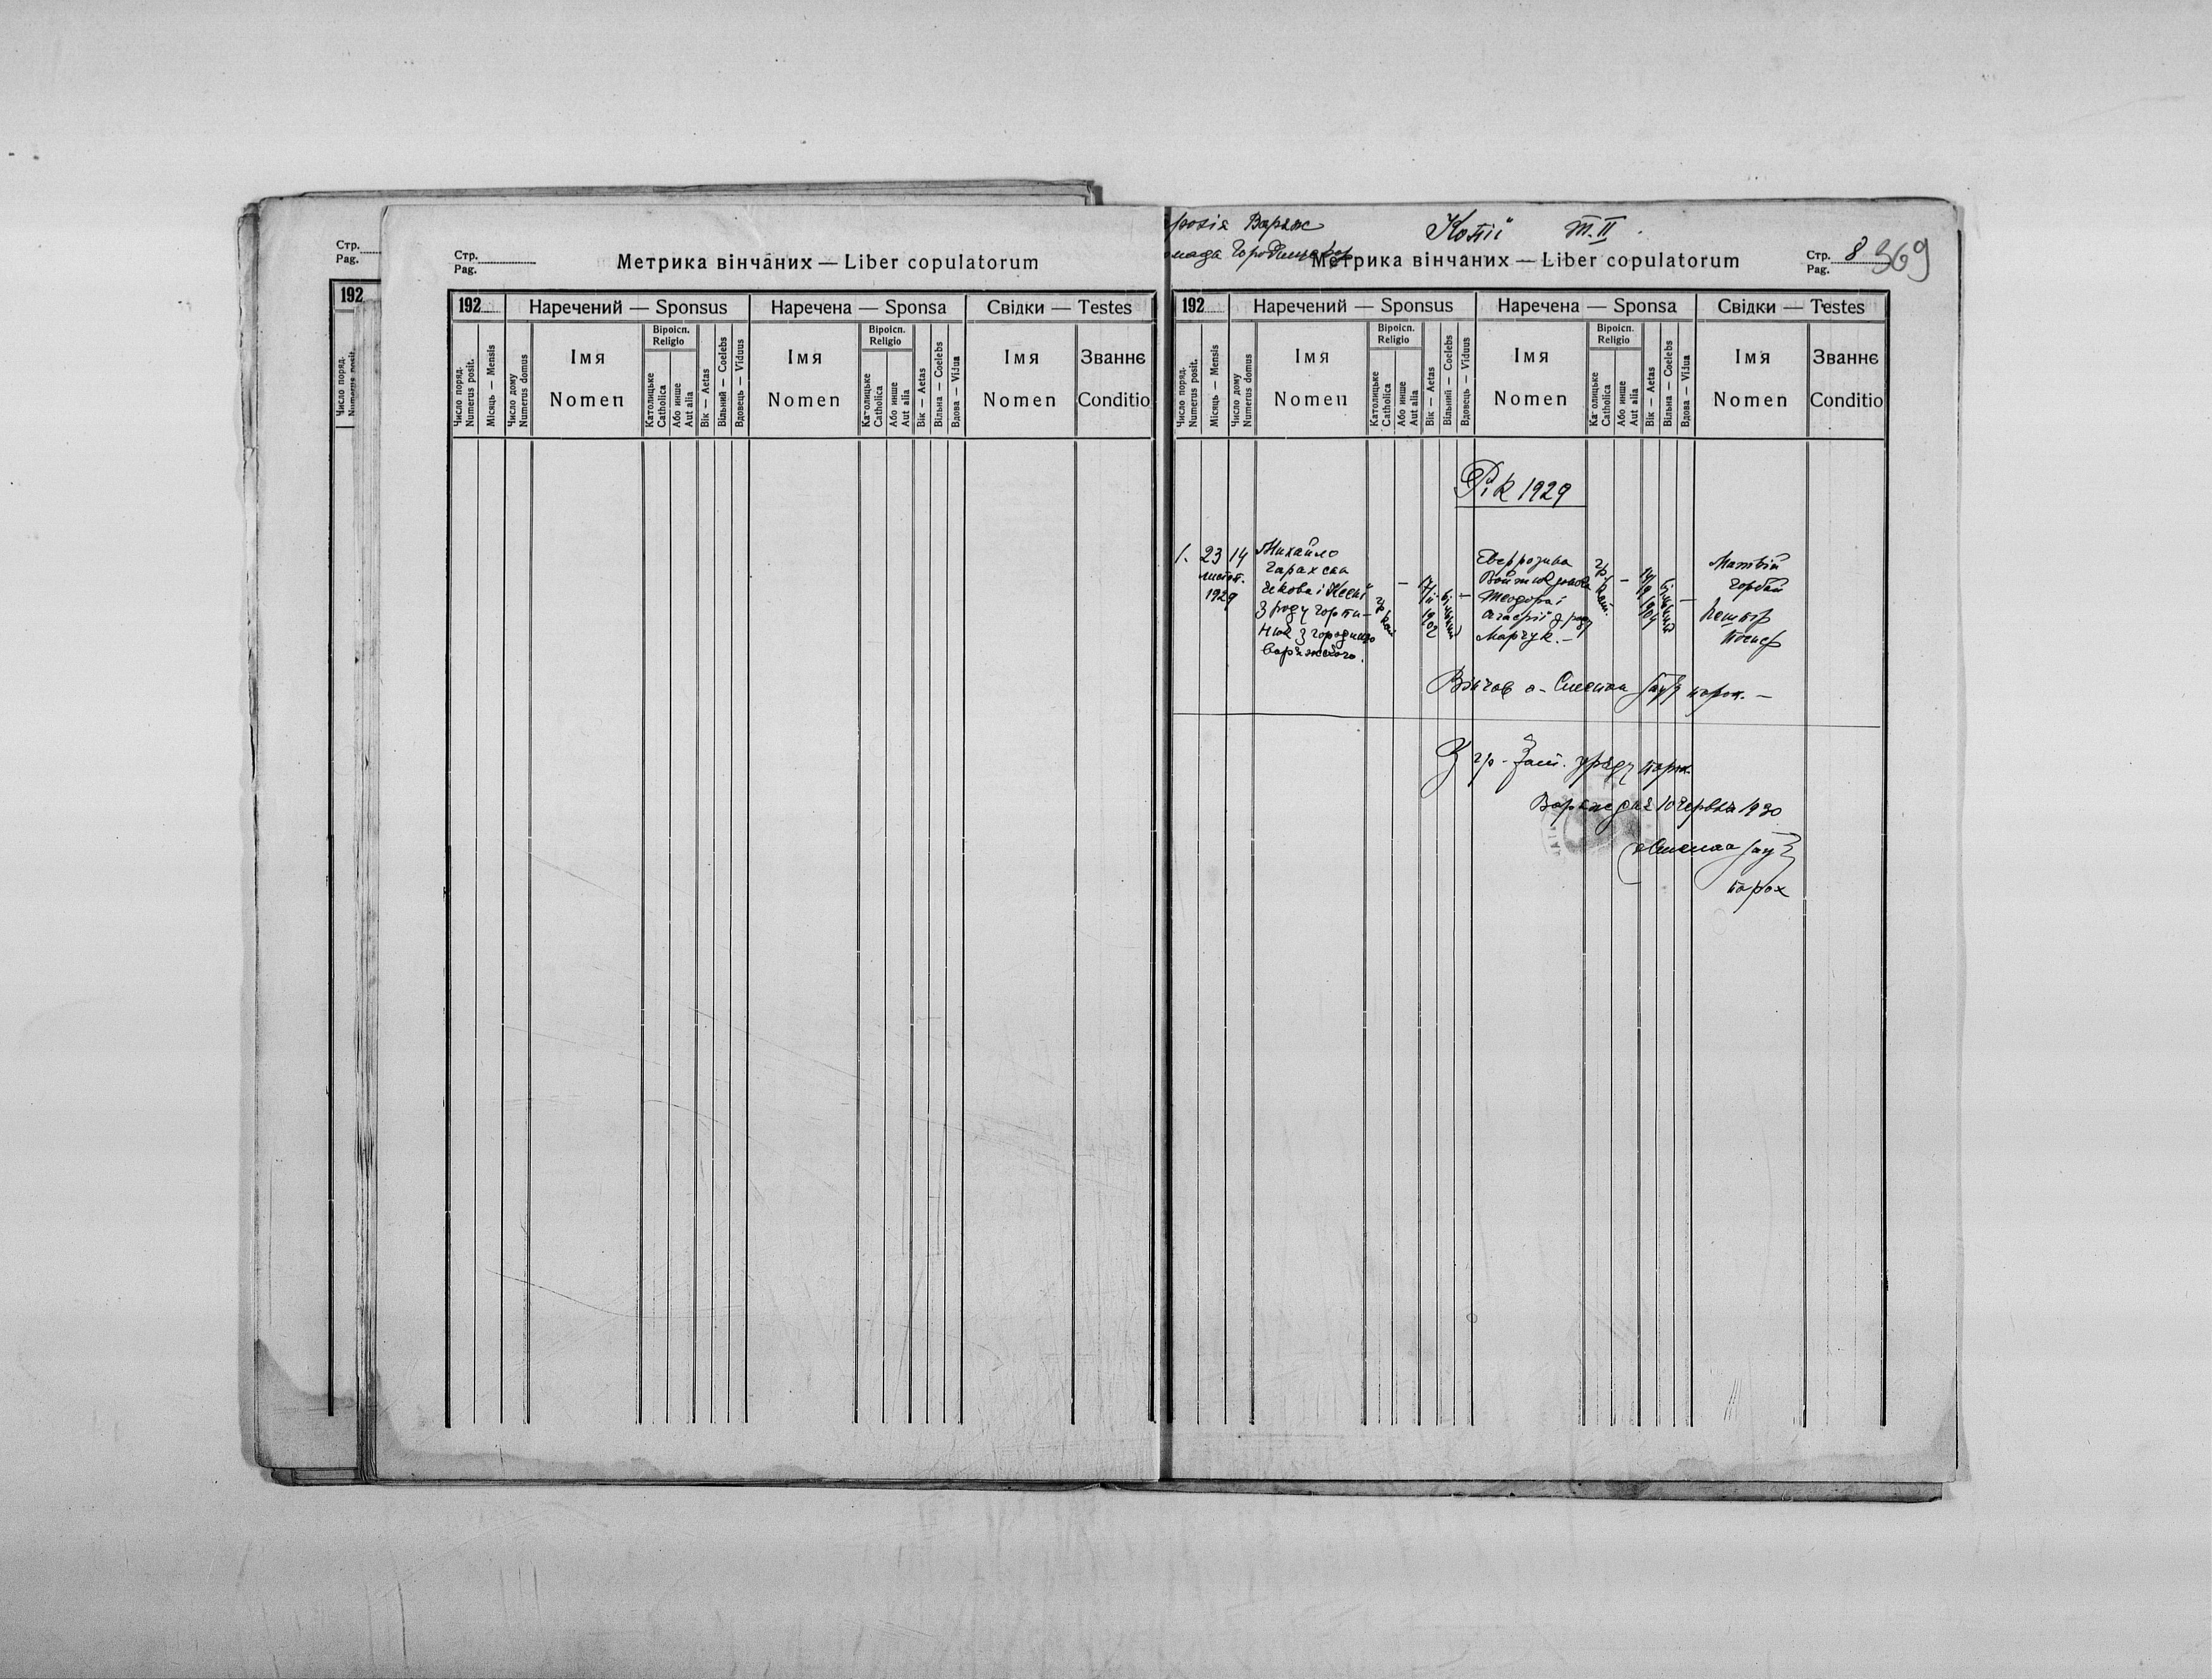 Стр.
Pag.
192
Число поряд.
Numerus posit.
Стр.
Pag.
Метрика вінчаних — Liber copulatorum
192
Наречений — Sponsus
Наречена — Sponsa
Свідки — Testes
Число поряд.
Numerus posit.
Місяць — Mensis
Число дому
Numerus domus
Імя
Nomen
Віроісп.
Religio
Католицьке
Catholica
Або инше
Aut alia
Вік — Aetas
Вільний — Coelebs
Вдовець — Viduus
Імя
Nomen
Віроісп.
Religio
Католицьке
Catholica
Або инше
Aut alia
Вік — Aetas
Вільна — Coelebs
Вдова — Vidua
Імя
Nomen
Званнє
Conditio
рохія Варяж
Копії Т. II.
мада Городище
Метрика вінчаних — Liber copulatorum
Стр. 8
Pag.
369
192
Наречений — Sponsus
Наречена — Sponsa
Свідки — Testes
Число поряд.
Numerus posit.
Місяць — Mensis
Число дому
Numerus domus
Імя
Nomen
Віроісп.
Religio
Католицьке
Catholica
Або инше
Aut alia
Вік — Aetas
Вільний — Coelebs
Вдовець — Viduus
Імя
Nomen
Віроісп.
Religio
Католицьке
Catholica
Або инше
Aut alia
Вік — Aetas
Вільна — Coelebs
Вдова — Vidua
Імя
Nomen
Званнє
Conditio
Рік 1929
1.
23
листоп.
1929
14
Михайло
з роду
Варяжского.
гр кат
—
17/II 1902
вільний
—
Теодора і
з роду
Марчук. —
гр. кат.
—
1904
вільна
—
Матвій
Горбай
Вінчав о. парох. —
З гр.-кат. уряду парох.
Варяж дня 10 червня 1930
парох